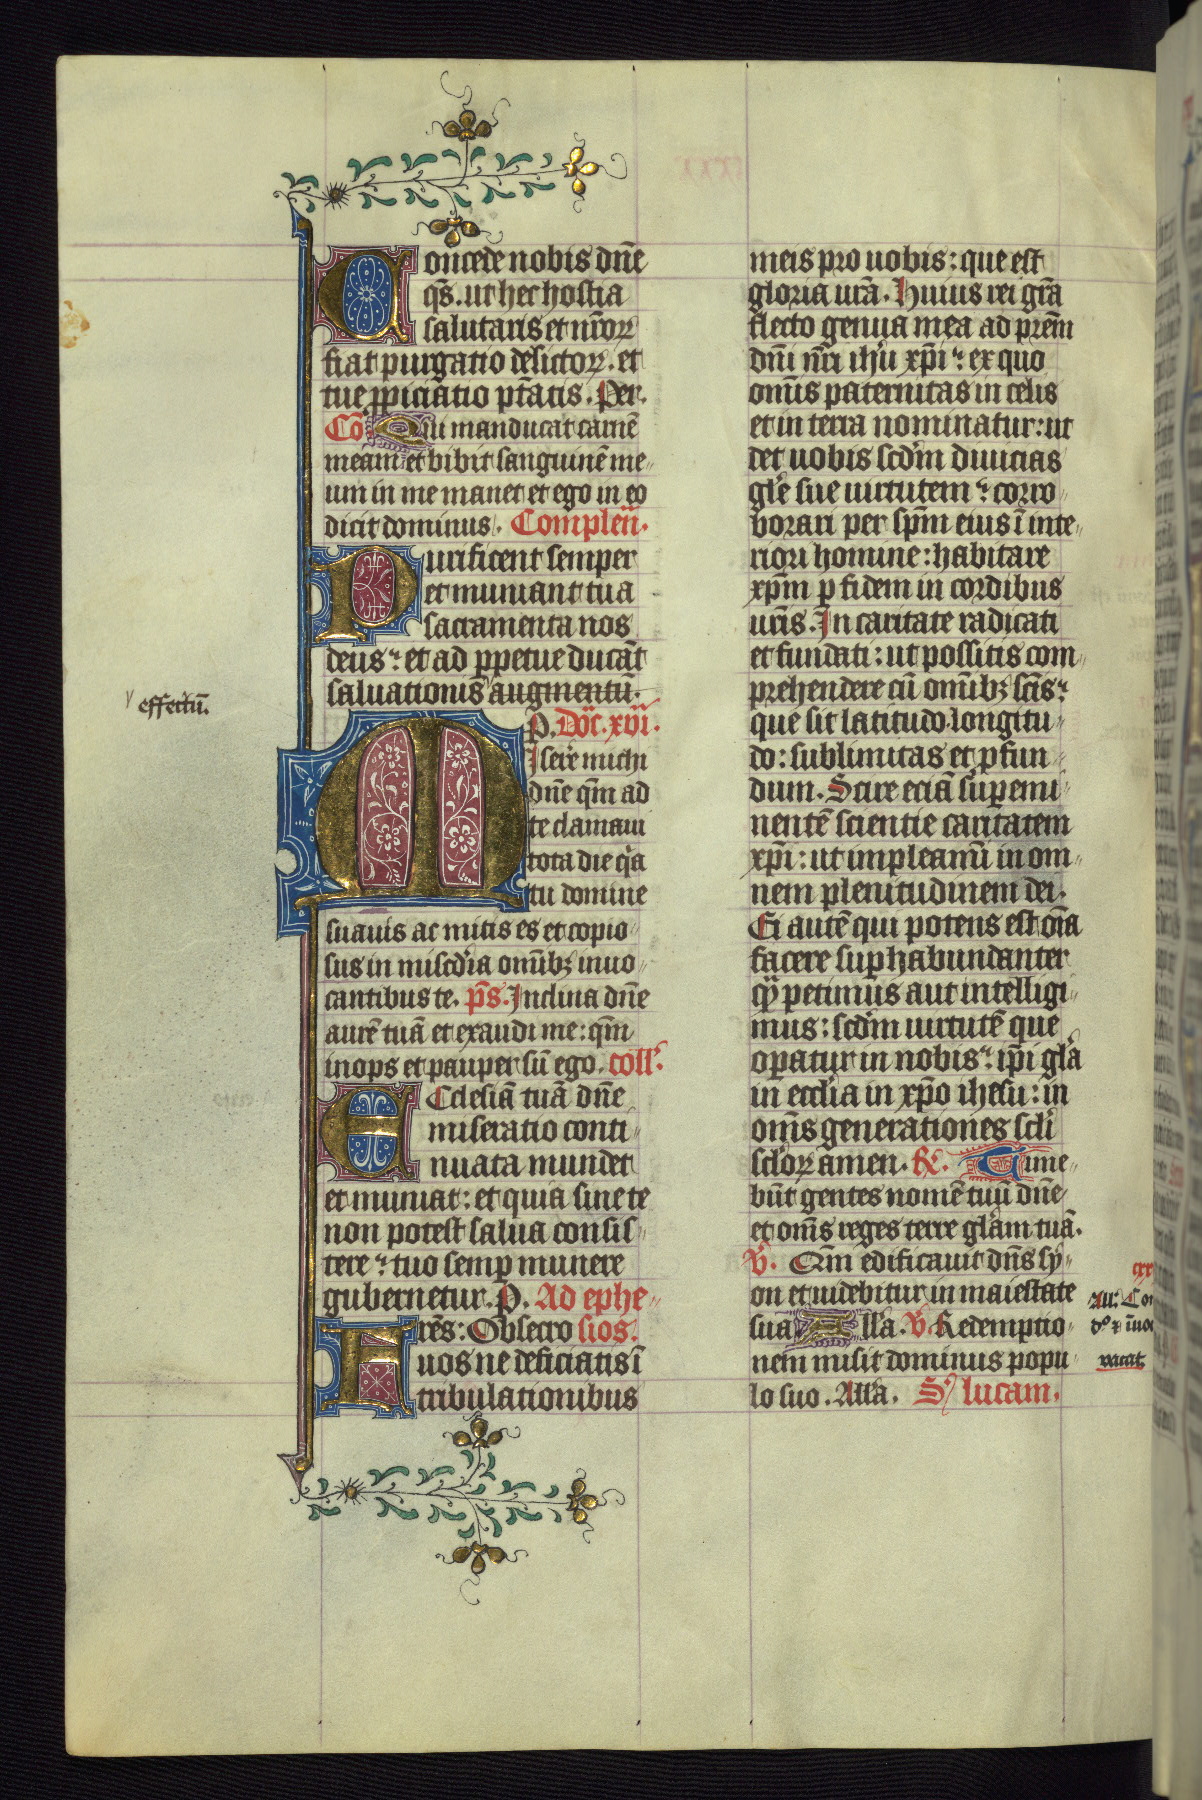 Concede nobis dñe
qs̄. ut hec hostia
salutaris et nr̄oꝝ
fiat purgatio delictoꝝ. et
tue ꝓpiciatio pt̄atis. Per.
Cō Qui manducat carnē
meam et bibit sanguinē me〃
um in me manet et ego in eo
dicit dominus. Complen̄.
Purificent semper
et muniant tua
sacramenta nos
deus: et ad ꝑpetue ducāt
saluationis augmentū.
effectū.
P. Doc̄. xvi.
Misere michi
dñe qm̄ ad
te clamaui
tota die qia
tu domine
suauis ac mitis es et copio〃
sus in mis̄cdia omībꝫ inuo〃
cantibus te. ps̄. Inclina dñe
aurē tuā et exaudi me: qm̄
inops et pauper sū ego. coll̄.
Ecclesiā tuā dñe
miseratio conti〃
nuata mundet
et muniat: et quia sine te
non potest salua consis〃
tere: tuo semꝑ munere
gubernetur. P. Ad ephe〃
Fr̄es: Obsecro sios.
uos ne deficiatis ī
tribulationibus
meis pro uobis: que est
gloria ur̄a. Huius rei gr̄a
flecto genua mea ad prēm
dn̄i nr̄i ihu xp̄i: ex quo
omīs paternitas in celis
et in terra nominatur: ut
det uobis scdm̄ diuicias
gl̄e sue uirtutem: corro〃
borari per sp̄m eius ī inte〃
riori homine: habitare
xp̄m ꝑ fidem in cordibus
ur̄is. In caritate radicati
et fundati: ut possitis com〃
prehendere cū omībꝫ sc̄is:
que sit latitudo. longitu〃
do: sublimitas et ꝓfun〃
dum. Scire eciā suꝑemi〃
nentē scientie caritatem
xp̄i: ut impleamī in om〃
nem plenitudinem dei.
Ei autē qui potens est om̄a
facere suꝑhabundanter
qꝫ petimus aut intelligi〃
mus: scdm̄ uirtutē que
oꝑatur in nobis: ip̄i gl̄a
in eccl̄ia in xp̄o ihesu: in
om̄s generationes scl̄i
scl̄oꝝ amen. ℟. Time〃
būt gentes nomē tuū dñe
et om̄s reges terre gl̄am tuā.
℣. Qm̄ edificauit dñs sy〃
on et uidebitur in maiestate
sua All̄a. ℣. Redemptio〃
nem misit dominus popu〃
lo suo. All̄a. S. lucam.
vacat